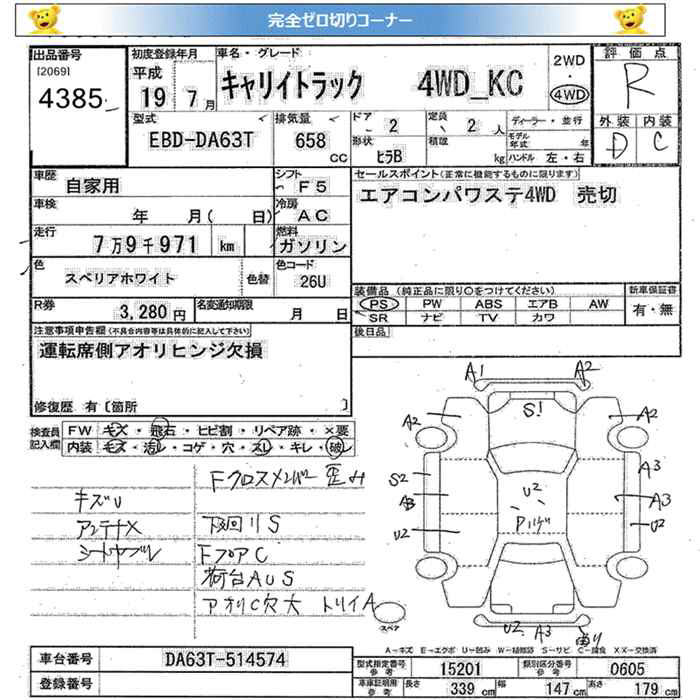 完全ゼロ切りコーナー
出品番号
[2069]
4385
初度登録年月
平成
19 7月
車名・グレード
キャリイトラック 4WD_KC
2WD
・
4WD
評価点
R
外装 内装
D C
型式
EBD-DA63T
排気量
658
cc
ドア
2
定員
2 人
ディーラー・並行
形状
ヒラB
積載
kg
モデル年式 年
ハンドル 左・右
車歴
自家用
シフト
F5
車検
年 月( 日)
冷房
AC
走行
7万9千971 km
燃料
ガソリン
色
スペリアホワイト
色替
色コード
26U
R券
3,280円
名変通知期限
月 日
セールスポイント(正常に機能するものに限ります)
エアコンパワステ4WD 売切
装備品(純正品に限り○をつけてください)
PS PW ABS エアB AW
SR ナビ TV カワ
新車保証書
有・無
後日品
注意事項申告欄(不具合内容等は具体的に記入して下さい)
運転席側アオリヒンジ欠損
修復歴 有〔箇所 〕
検査員記入欄
FW キズ・飛石・ヒビ割・リペア跡・×要
内装 キズ・汚レ・コゲ・穴・スレ・キレ・破レ
Fクロスメンバー 歪み
キズU
アンテナX
下廻リS
シートヤブレ
FフロアC
荷台AUS
アオリC欠大 トリイA
A1 A2
S1
A2 A2
S2 A3
U2
A3 A3
U2 U2
Pハゲ
スペア
U2 A3 曲り
A-キズ E-エクボ U-凹み W-補修跡 S-サビ C-腐食 XX-交換済
車台番号 DA63T-514574
登録番号
型式指定番号 参考 15201
類別区分番号 参考 0605
車庫証明用 参考 長さ 339 cm 幅 147 cm 高さ 179 cm